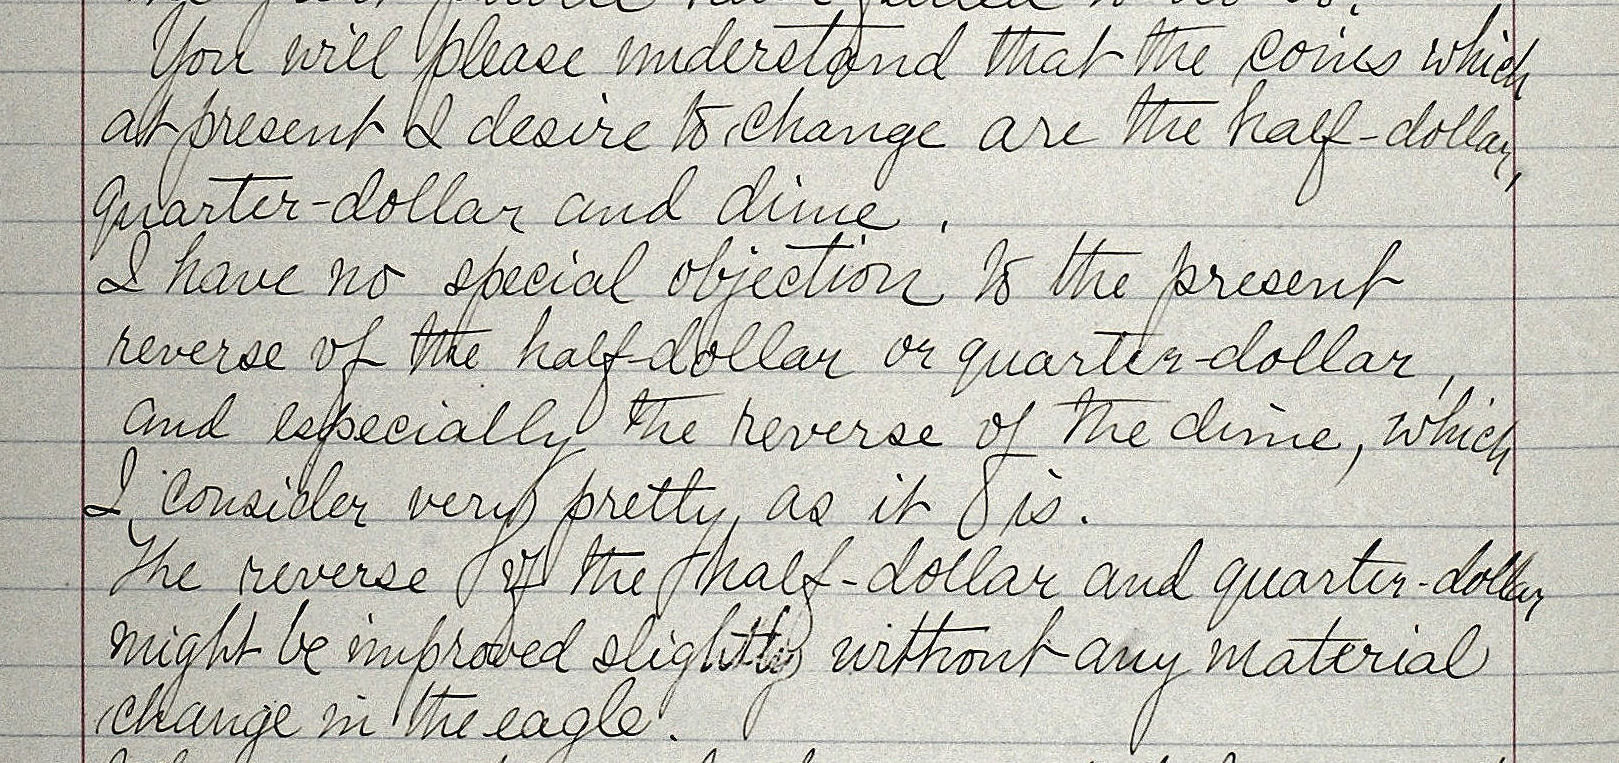 You will please understand that the coins which
at present I desire to change are the half-dollar,
quarter-dollar and dime.
I have no special objection to the present
reverse of the half-dollar or quarter-dollar,
and especially the reverse of the dime, which
I consider very pretty as it is.
The reverse of the half-dollar and quarter-dollar
might be improved slightly without any material
change in the eagle.